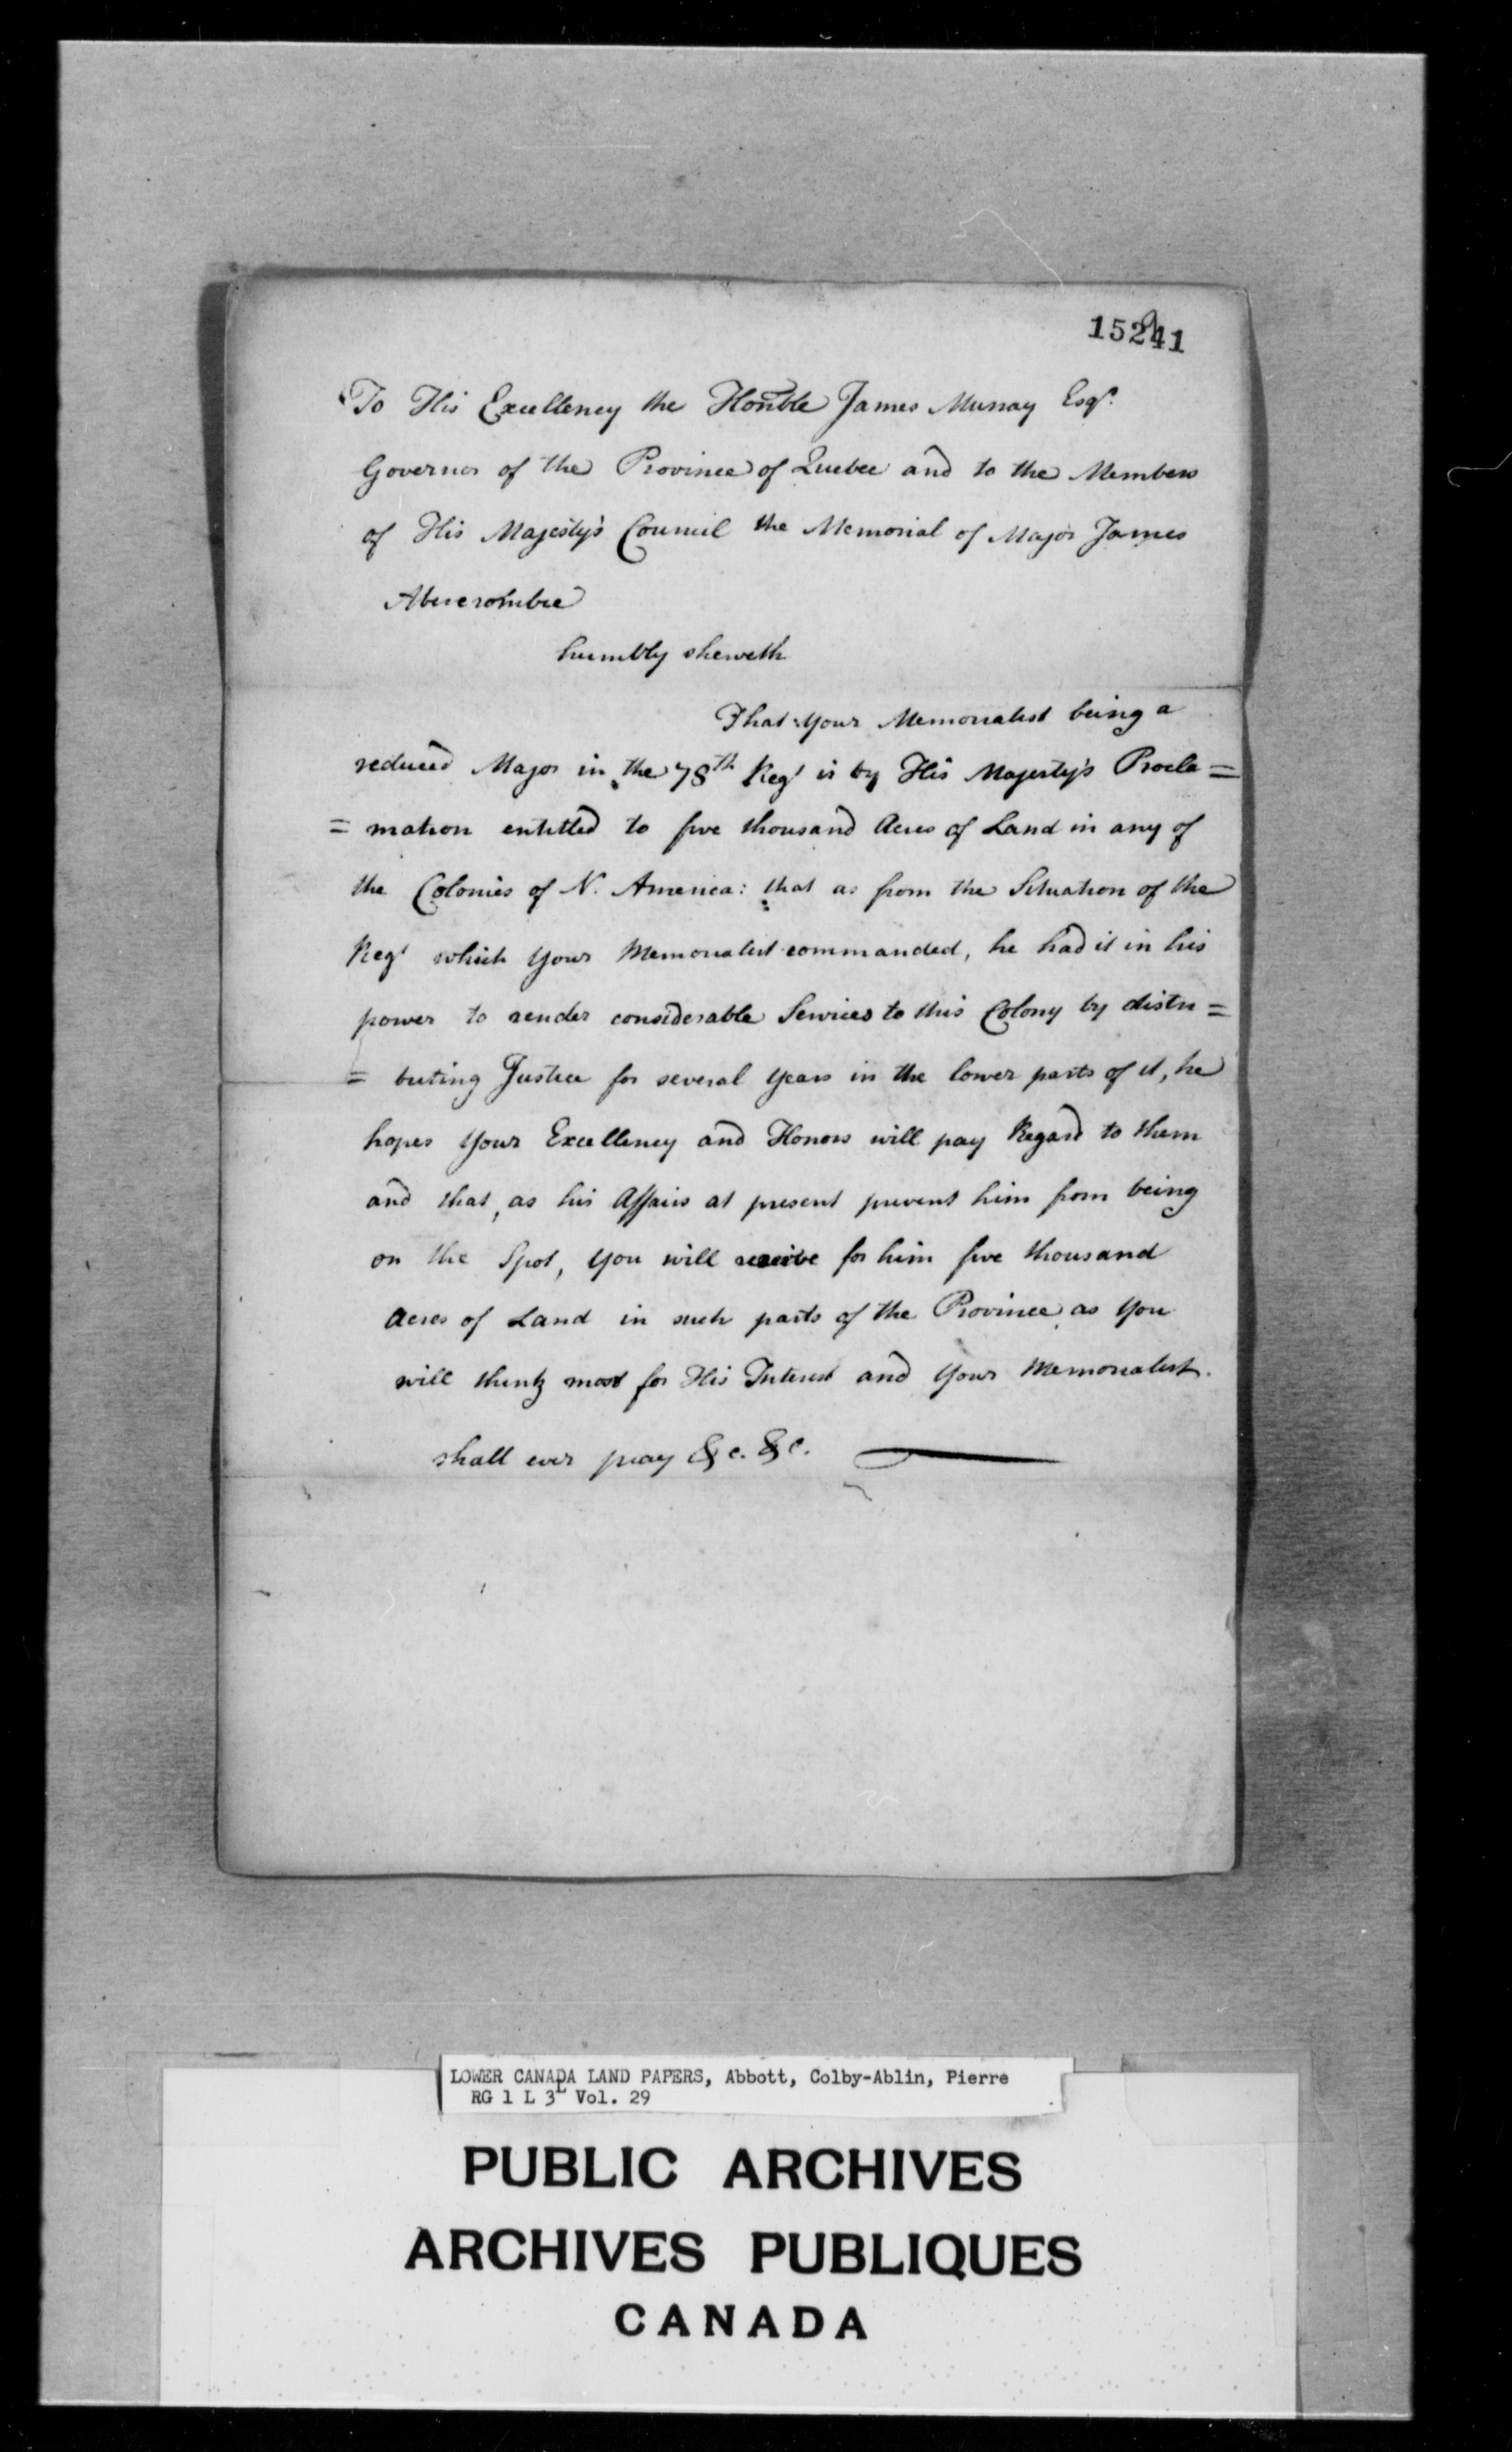 15241
To His Excellency the Honble James Murray Esqr.
Governor of the Province of Quebec and to the Members
of His Majesty's Council the Memorial of Major James
Abercrombie
humbly sheweth
That your Memorialist being a
reduced Major in the 78th Regt is by His Majesty's Procla=
=mation entitled to five thousand Acres of Land in any of
the Colonies of N. America: that as from the Situation of the
Regt which your Memorialist commanded, he had it in his
power to render considerable Services to this Colony by distri=
=buting Justice for several years in the lower parts of it, he
hopes your Excellency and Honors will pay Regard to them
and that, as his Affairs at present prevent him from being
on the Spot, you will for him five thousand
Acres of Land in such parts of the Province as you
will think most for His Interest and your Memorialist.
shall ever pray &c. &c.
LOWER CANADA LAND PAPERS, Abbott, Colby-Ablin, Pierre
RG 1 L 3L Vol. 29
PUBLIC ARCHIVES
ARCHIVES PUBLIQUES
CANADA